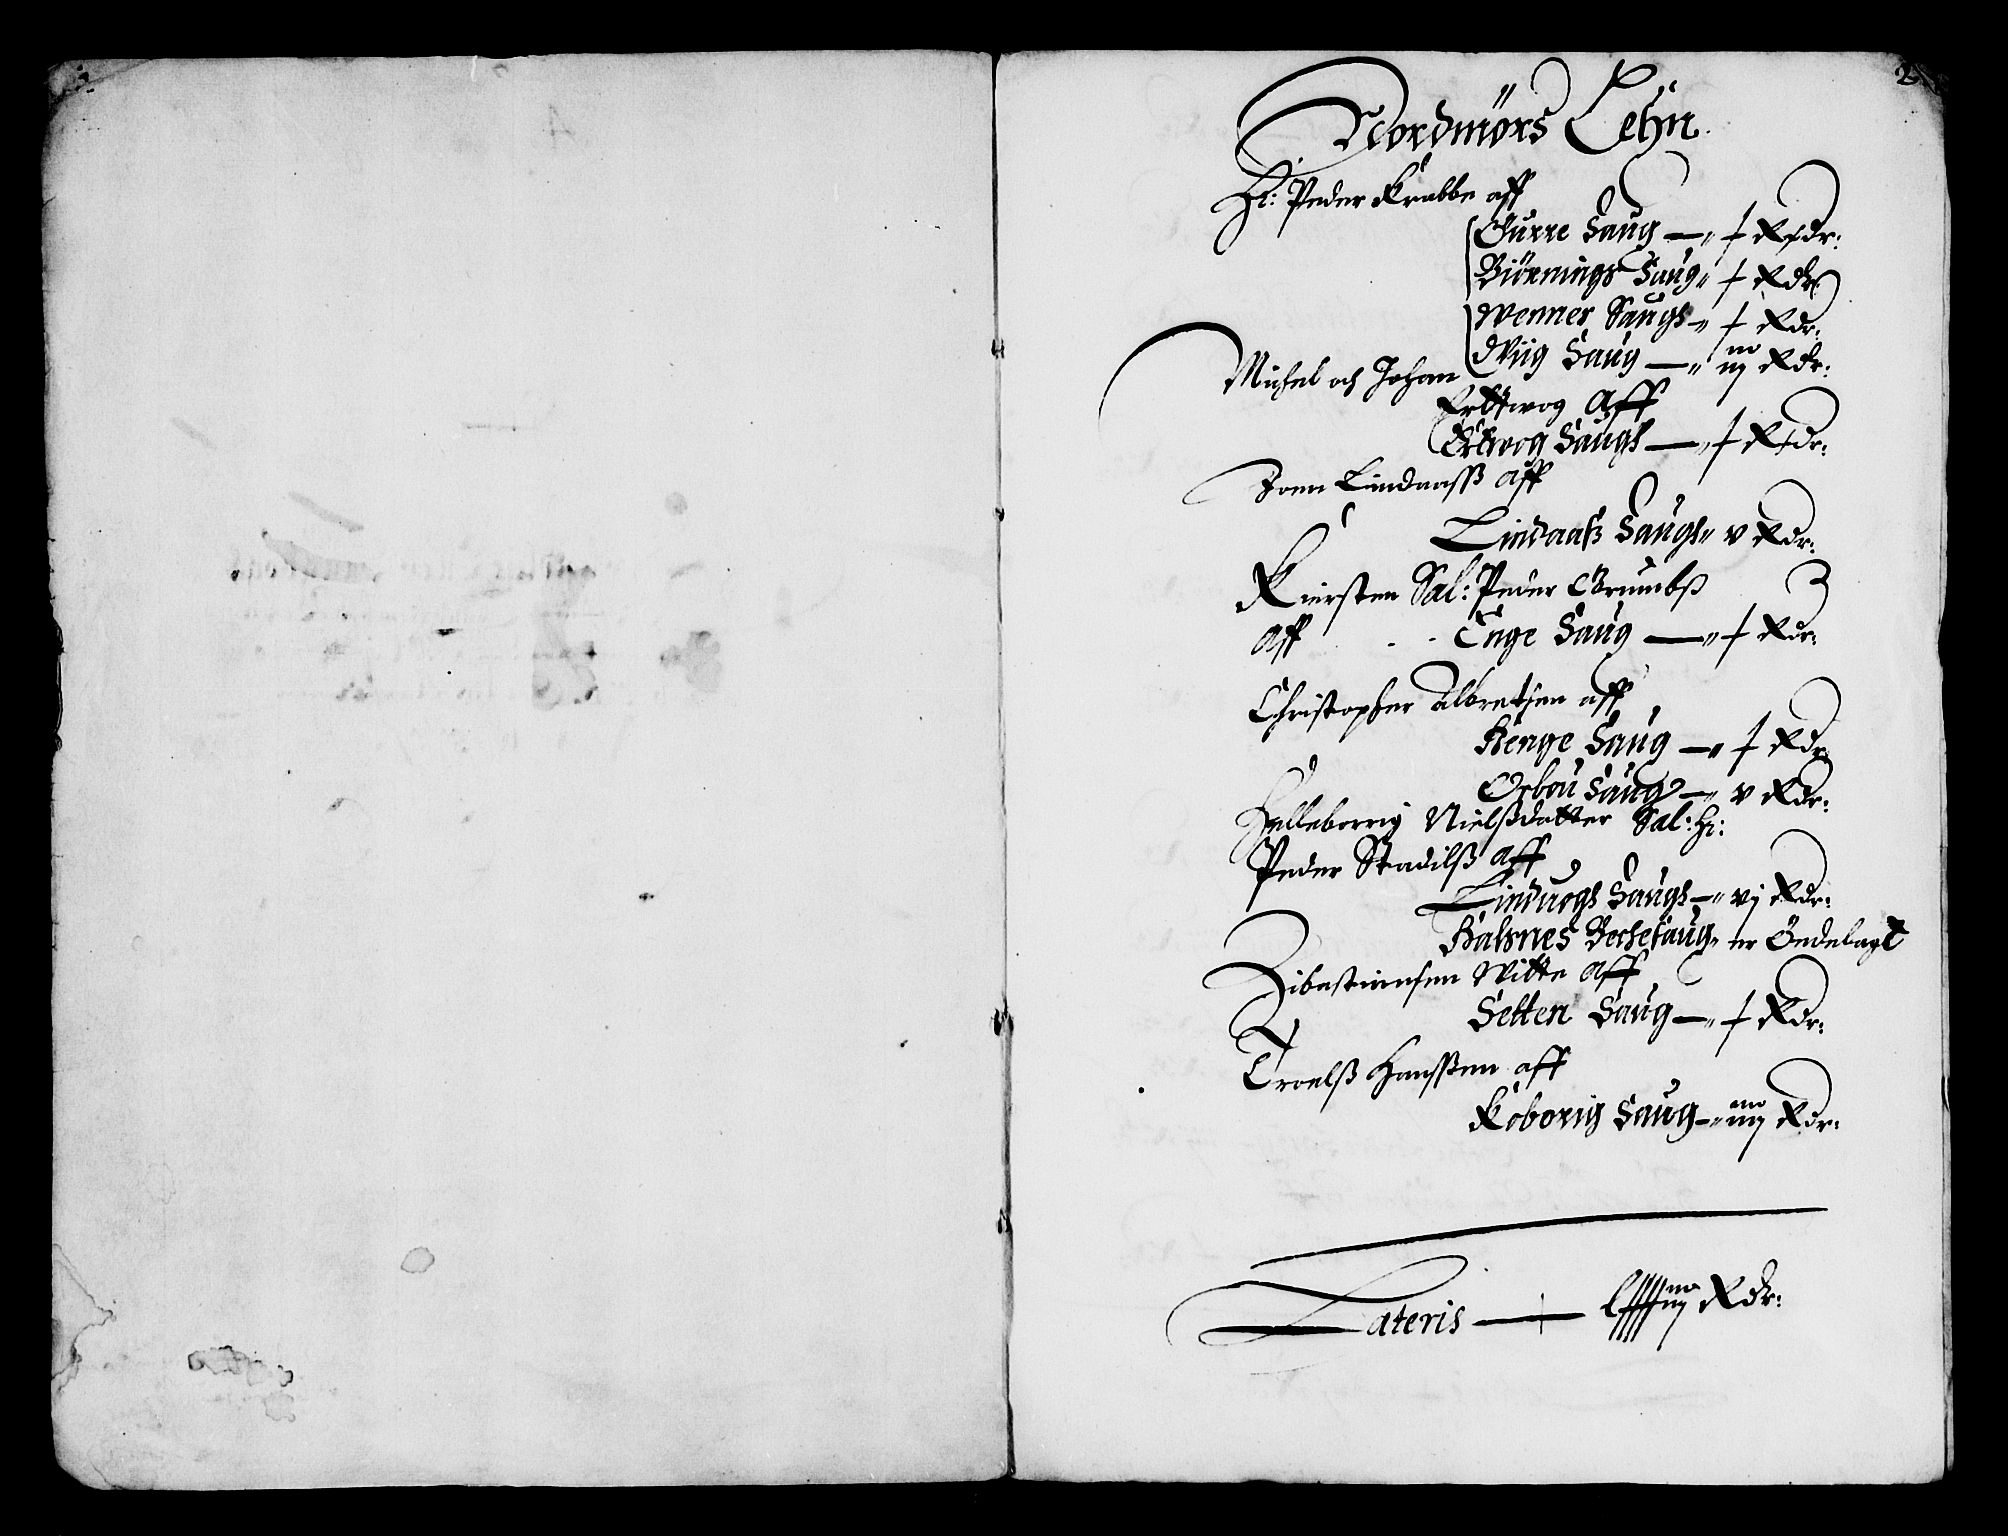 2
Nordmørs Lehn.
Hr: Peder Krabbe aff
Gurre Saug — x Rdr:
Biörnings Saug x Rdr:
Wenner Saugs x Rdr:
Wiig Saug — iij Rdr:
Michel och Johan
Ertwog Aff
Ertwog Saugs — x Rdr:
Joen Lindaass aff
Lindaaß Saugs v Rdr:
Kiersten Sal: Peder Grumbß
Aff Enge Saug — x Rdr:
Christopher Albretsen aff
Henge Saug — x Rdr:
Orbou Saug — v Rdr:
Helleborrig Nielßdatter Sal: Hr:
Peder Stadilß aff
Linduogs Saugs — vj Rdr:
Halsnes Beckesaug er Ödelagt
Witte Aff
Setten Saug — x Rdr:
Troelß Hanssen aff
Koborig Saug — iiij Rdr:
Lateris — Rdr: